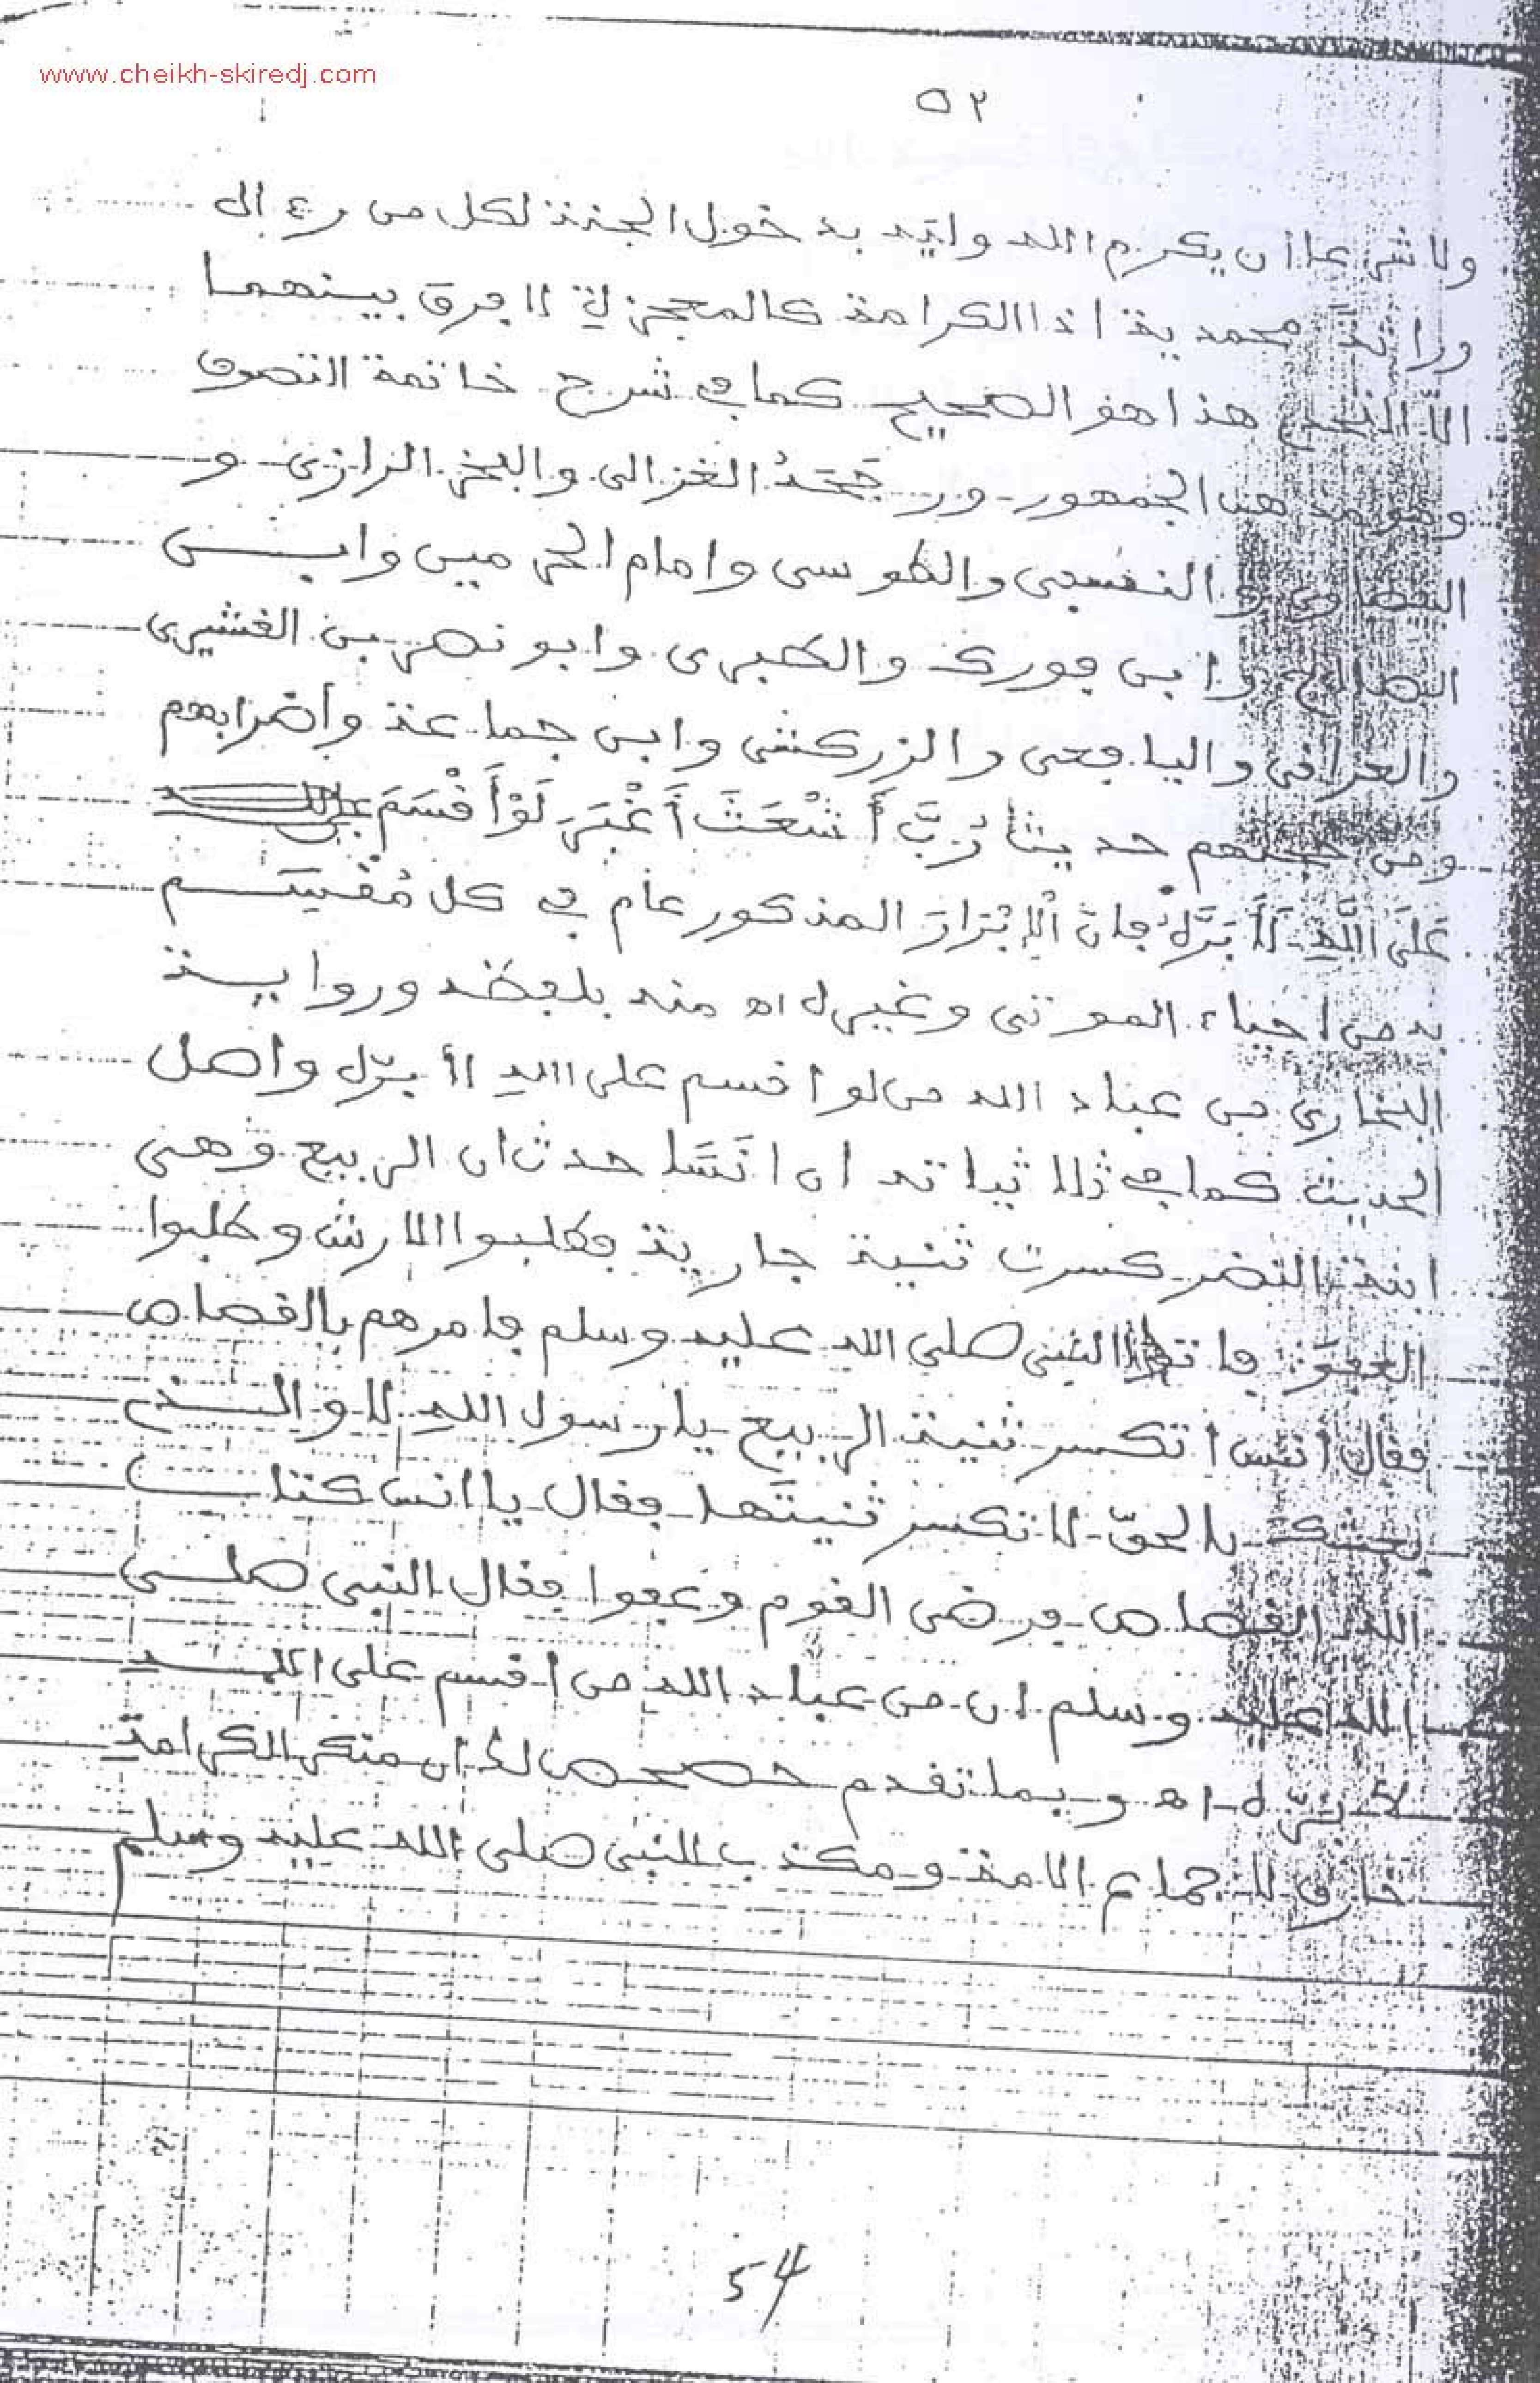 www.cheikh-skiredj.com
٥٢
ولا شرعا ان يكرم الله وليه بدخول الجنة لكل من رءاه
وراثة محمدية اذ الكرامة كالمعجزة لا فرق بينهما
الا هذا هو الصحيح كما في شرح خاتمة التصوف
الجمهور ورجحه الغزالي والفخر الرازي و
والنسفي والطوسي وامام الحرمين وابن
وابن فورك والطبري وابو نصر بن القشيري
والعراقي واليافعي والزركشي وابن جماعة وأضرابهم
ومن حديث رُبَّ أَشْعَثَ أَغْبَرَ لَوْ أَقْسَمَ
عَلَى اللَّهِ لَأَبَرَّهُ فإن الإِبْرَارَ المذكور عام في كل مُقْسَم
به من احياء الموتى وغيره اه منه بلفظه ورواية
البخاري من عباد الله من لو اقسم على الله لأبرّه واصل
الحديث كما في ثلاثياته ان انَسًا حدث ان الربيع وهي
ابنة النضر كسرت ثنية جارية فطلبوا الارش وطلبوا
العفو فاتوا النبي صلى الله عليه وسلم فامرهم بالقصاص
فقال انس اتكسر ثنية الربيع يا رسول الله لا والذي
بعثك بالحقّ لا تكسر ثنيتها فقال يا انس كتاب
الله القصاص فرضي القوم وعفوا فقال النبي صلى
الله عليه وسلم ان من عباد الله من اقسم على الله
لأبرّه اه وبما تقدم حصحص لك ان منكر الكرامة
خارق لاجماع الامة ومكذب للنبي صلى الله عليه وسلم
54